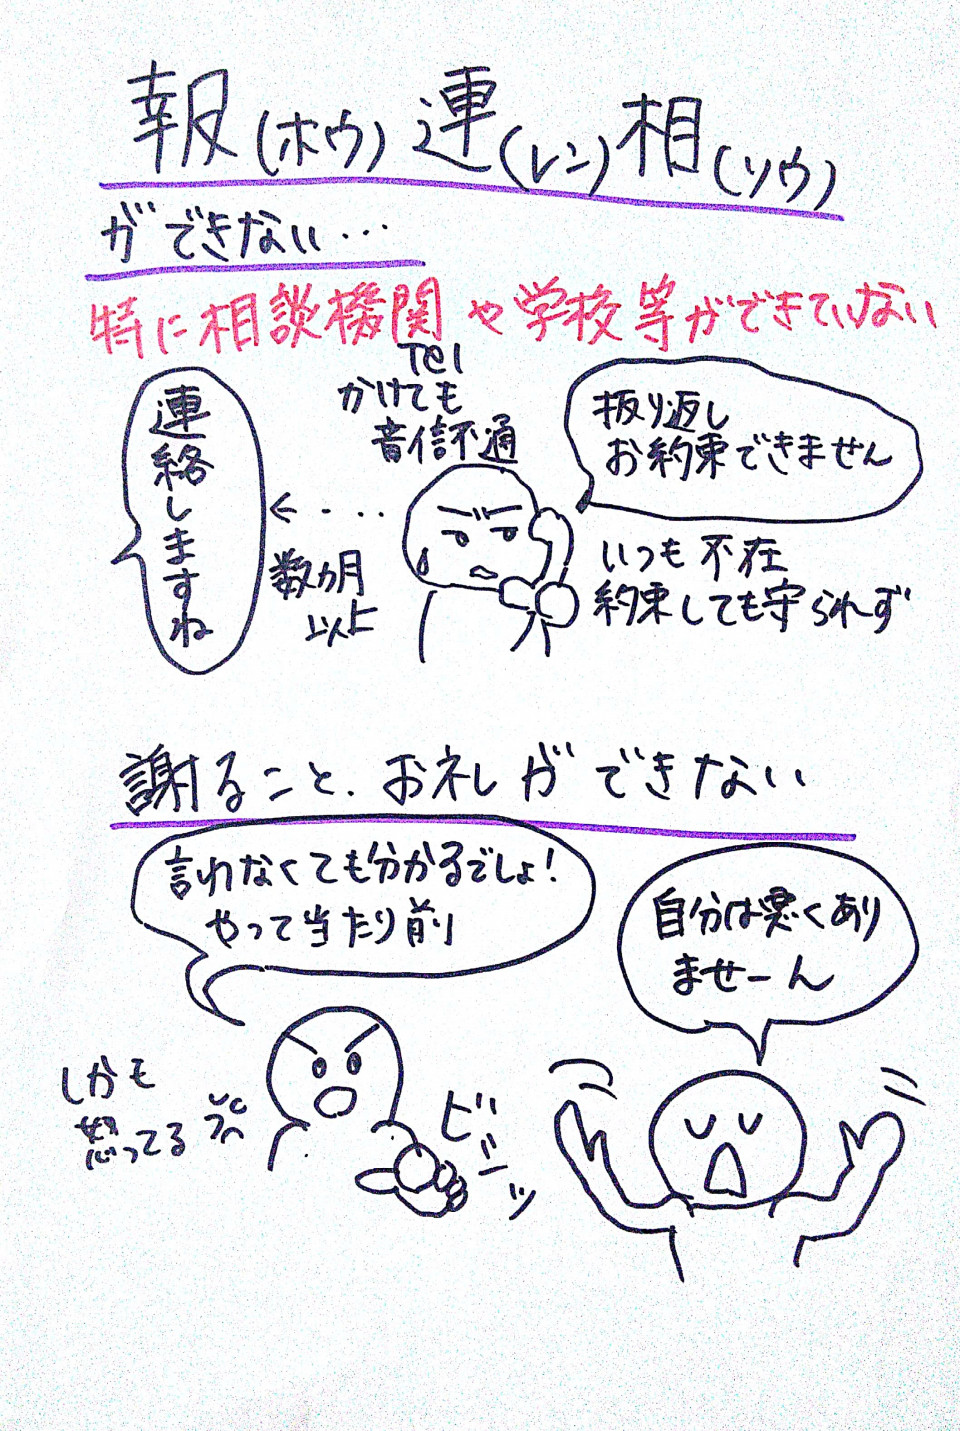 報(ホウ)連(レン)相(ソウ)
ができない…
特に相談機関や学校等ができていない
Tel
かけても
音信不通
連絡しますね
←・・・
数ヵ月
以上
折り返し
お約束できません
いつも不在
約束しても守られず
謝ること、お礼ができない
言われなくても分かるでしょ!
やって当たり前
自分は悪くあり
ませーん
しかも
怒ってる
ビシッ